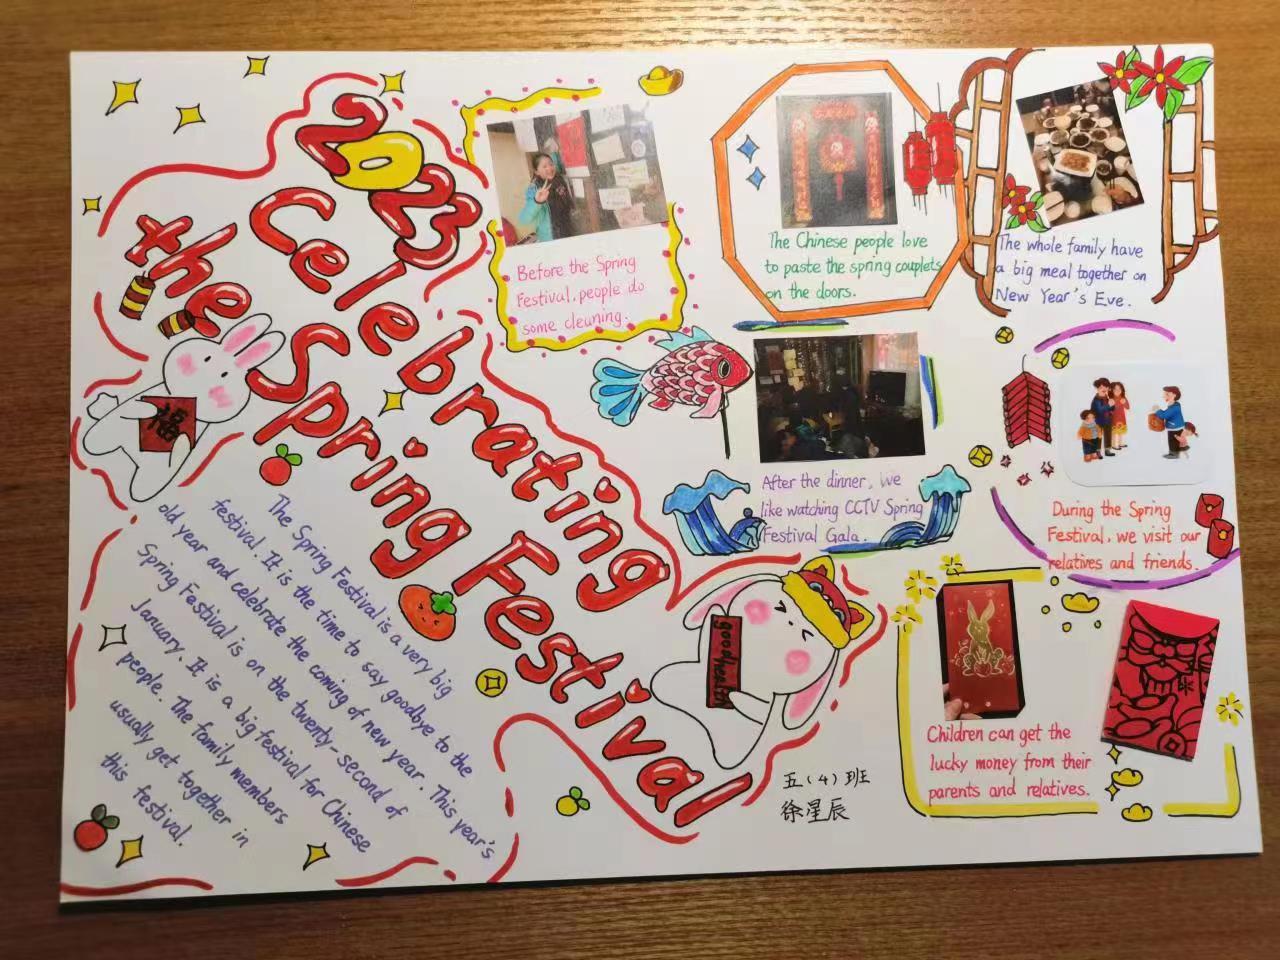 2023
Celebrating
the Spring Festival
福
The Spring Festival is a very big
festival. It is the time to say goodbye to the
old year and celebrate the coming of new year. This year's
Spring Festival is on the twenty-second of
January. It is a big festival for Chinese
people. The family members
usually get together in
this festival.
Before the Spring
Festival, people do
some cleuning.
The Chinese people love
to paste the spring couplets
on the doors.
The whole family have
a big meal together on
New Year's Eve.
After the dinner, we
like watching CCTV Spring
Festival Gala.
During the Spring
Festival, we visit our
relatives and friends.
good health
Children can get the
lucky money from their
parents and relatives.
五（4）班
徐星辰